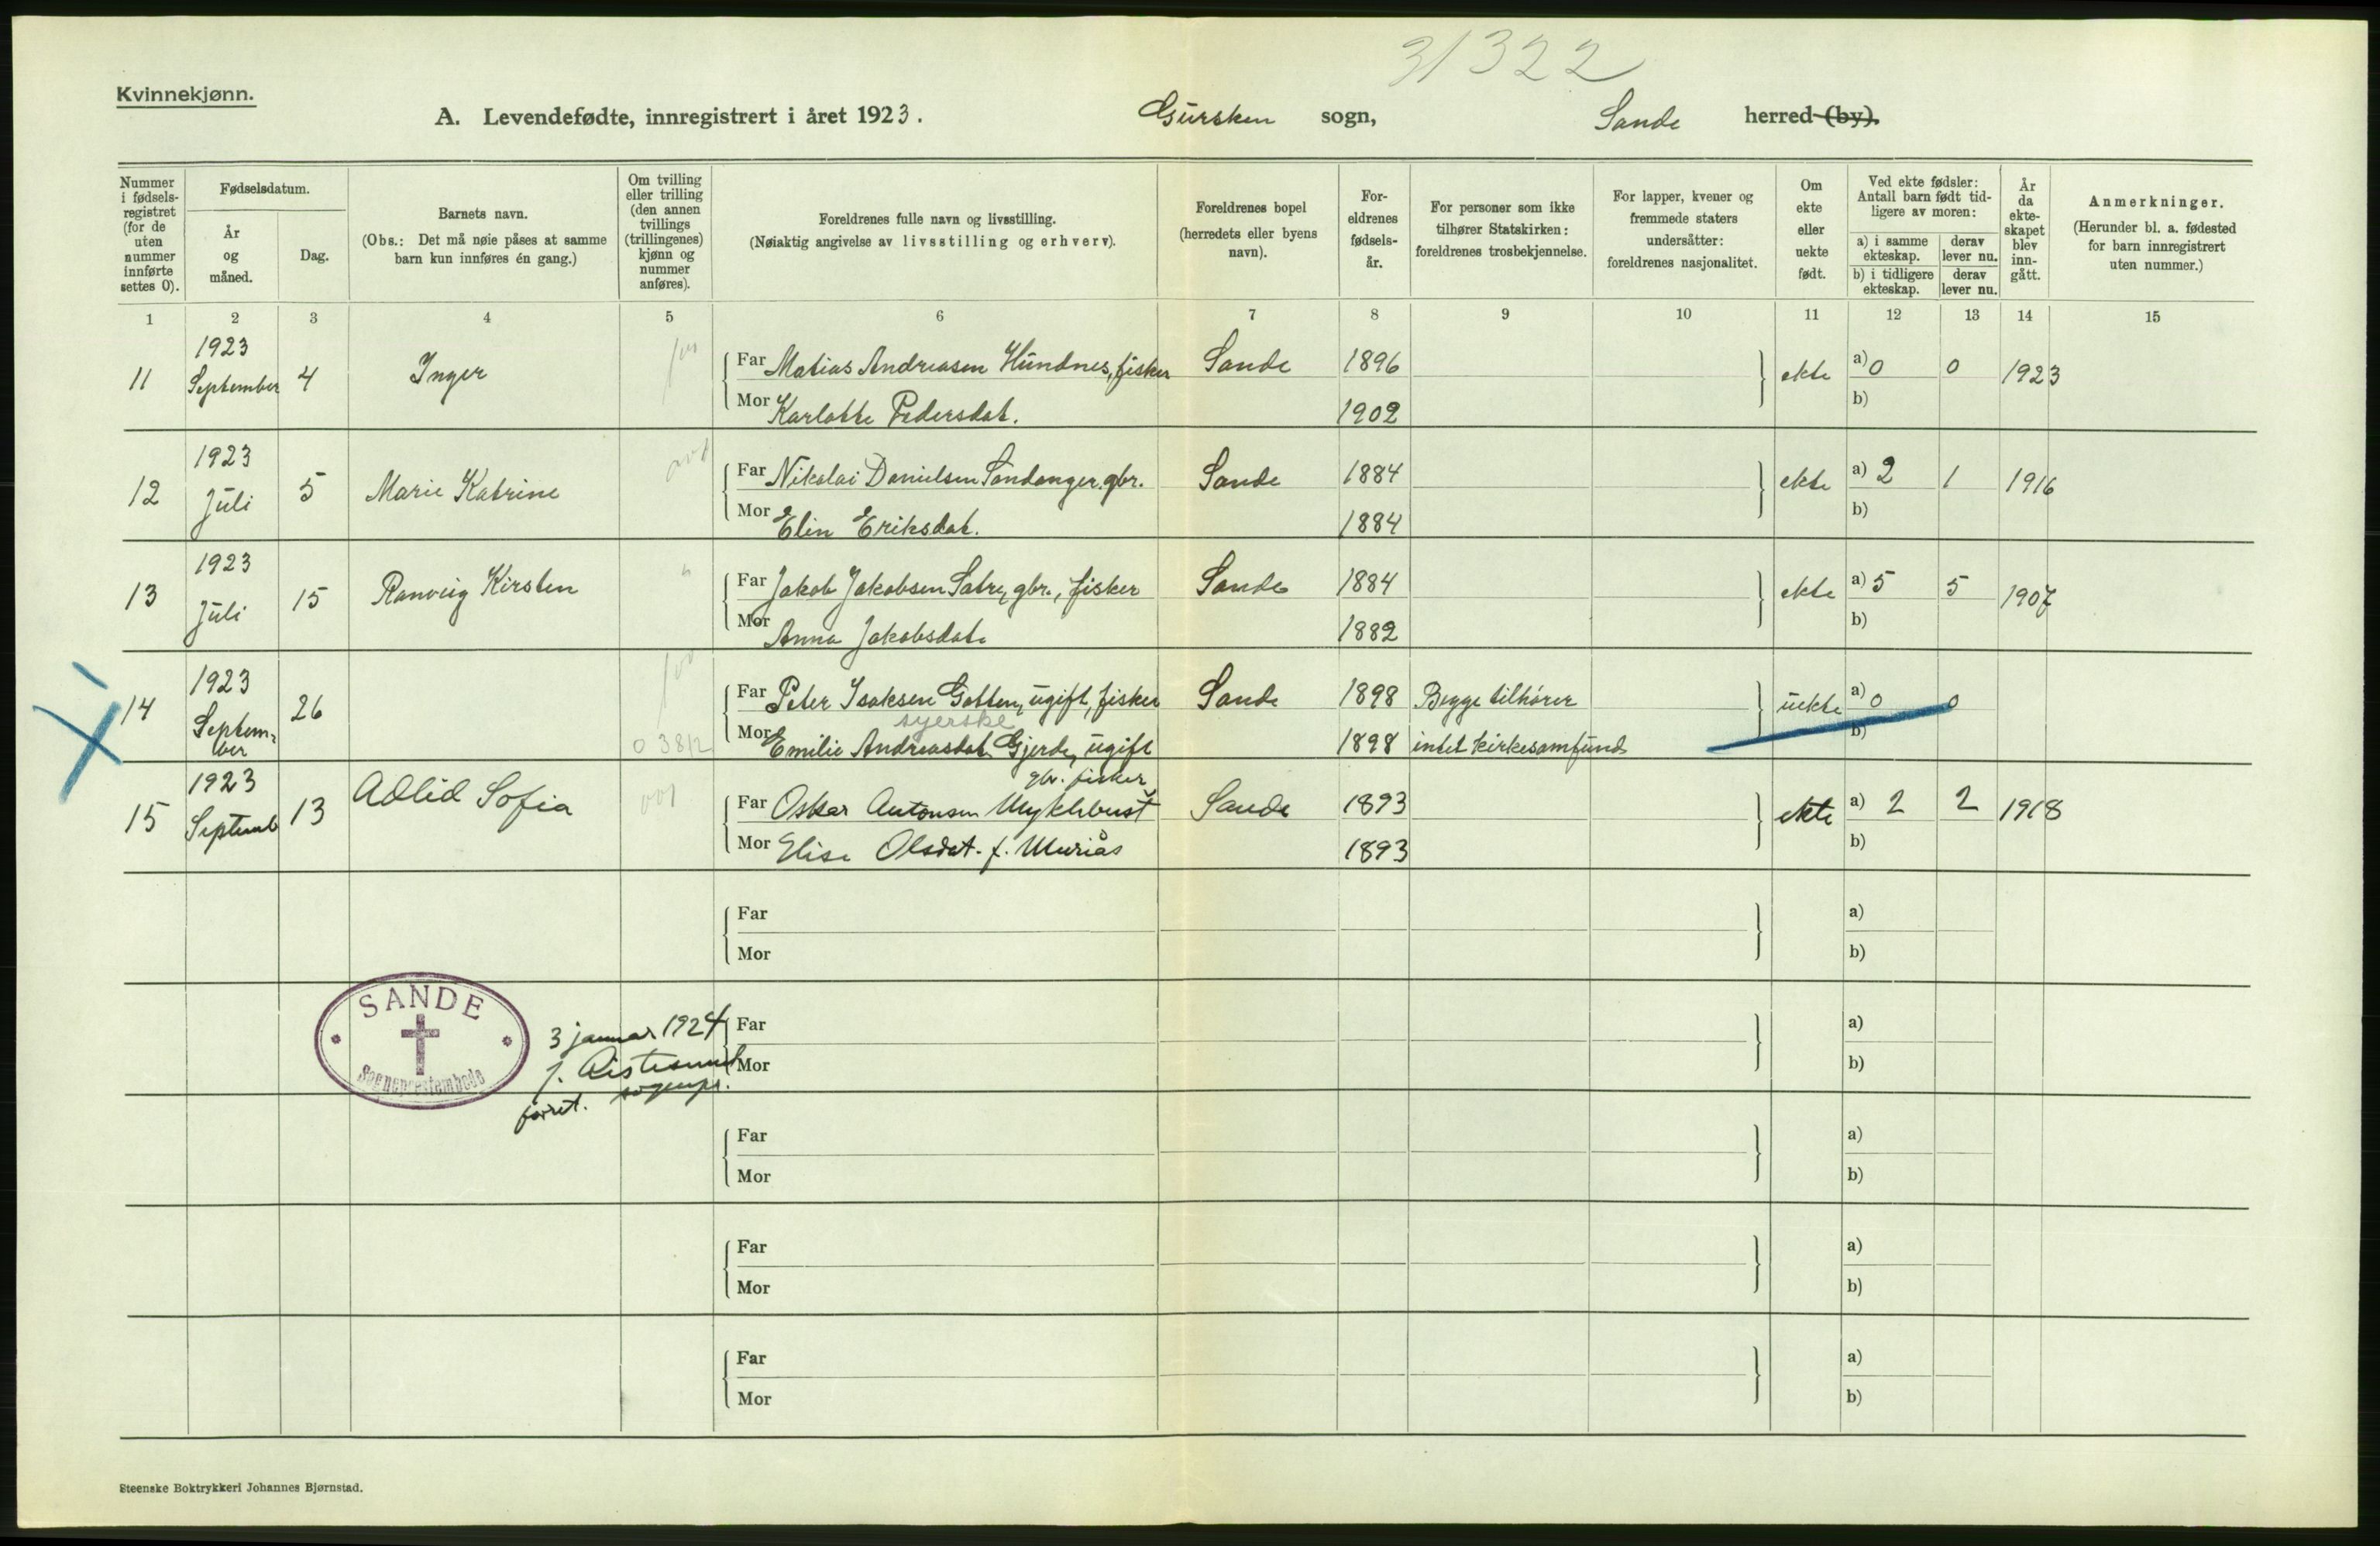 31322
Kvinnekjønn.
A. Levendefødte, innregistrert i året 1923. Gursken sogn, Sande herred (by).
Nummer i fødsels-registret (for de uten nummer innførte settes 0).
Fødselsdatum.
År og måned.
Dag.
Barnets navn.
(Obs.: Det må nøie påses at samme barn kun innføres én gang.)
Om tvilling eller trilling (den annen tvillings (trillingenes) kjønn og nummer anføres).
Foreldrenes fulle navn og livsstilling.
(Nøiaktig angivelse av livsstilling og erhverv).
Foreldrenes bopel (herredets eller byens navn).
For-eldrenes fødsels-år.
For personer som ikke tilhører Statskirken: foreldrenes trosbekjennelse.
For lapper, kvener og fremmede staters undersåtter: foreldrenes nasjonalitet.
Om ekte eller uekte født.
Ved ekte fødsler: Antall barn født tid-ligere av moren:
a) i samme ekteskap.
derav lever nu.
b) i tidligere ekteskap.
derav lever nu.
År da ekte-skapet blev inn-gått.
Anmerkninger.
(Herunder bl. a. fødested for barn innregistrert uten nummer.)
1 2 3 4 5 6 7 8 9 10 11 12 13 14 15
11 1923 September 4 Inger Far Matias Andreasen Hundnes, fisker Sande 1896 ekte a) 0 0 1923
Mor Karlotte Pedersdat. 1902 b)
12 1923 Juli 5 Marie Katrine Far Nikolai Danielsen Sandanger, gbr. Sande 1884 ekte a) 2 1 1916
Mor Elin Eriksdat. 1884 b)
13 1923 Juli 15 Ranveig Kirsten Far Jakob Jakobsen Sætre, gbr., fisker Sande 1884 ekte a) 5 5 1907
Mor Anna Jakobsdat. 1882 b)
14 1923 September 26 Far Peter Isaksen Gotten, ugift, fisker Sande 1898 Begge tilhører uekte a) 0 0
syerske
0 3812 Mor Emilie Andreasdat. Gjerde, ugift 1898 intet kirkesamfund b)
gbr. fisker
15 1923 Septemb 13 Adlid Sofia 001 Far Oskar Antonsen Myklebust Sande 1893 ekte a) 2 2 1918
Mor Elise Olsdat. f. Muriås 1893 b)
Far a)
Mor b)
SANDE
Sogneprestembede
3 januar 1924
sogepr.
Far a)
Mor b)
Far a)
Mor b)
Far a)
Mor b)
Far a)
Mor b)
Steenske Boktrykkeri Johannes Bjørnstad.